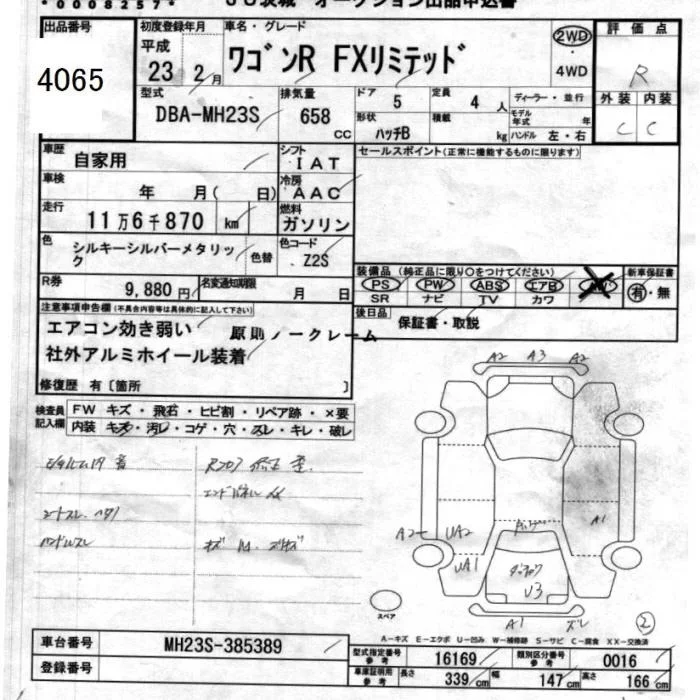 *0008257*
オークション出品申込書
出品番号
4065
初度登録年月
平成
23 2月
車名・グレード
ワゴンR FXリミテッド
2WD
・
4WD
評価点
R
外装 内装
C C
型式
DBA-MH23S
排気量
658
CC
ドア
5
定員
4 人
形状
ハッチB
積載
kg
ディーラー・並行
モデル年式 年
ハンドル 左・右
車歴
自家用
シフト
IAT
セールスポイント(正常に機能するものに限ります)
車検
年 月( 日)
冷房
AAC
走行
11万6千870 km
燃料
ガソリン
色
シルキーシルバーメタリック
色替
色コード
Z2S
装備品(純正品に限り○をつけてください)
PS PW ABS エアB
SR ナビ TV カワ
新車保証書
有・無
R券
9,880円
名変通知期限
月 日
後日品
保証書・取説
注意事項申告欄(不具合内容等は具体的に記入して下さい)
エアコン効き弱い
原則ノークレーム
社外アルミホイール装着
修復歴 有〔箇所 〕
検査員記入欄
FW キズ・飛石・ヒビ割・リペア跡・×要
内装 キズ・汚レ・コゲ・穴・スレ・キレ・破レ
シートスレ・ヘタリ
ハンドルスレ
A2 A3 A2
A2
UA2
UA1
A1
U3
A1 ズレ
スペア
2
A-キズ E-エクボ U-凹み W-補修跡 S-サビ C-腐食 XX-交換済
車台番号
MH23S-385389
登録番号
型式指定番号
参考
16169
類別区分番号
参考
0016
車庫証明用
参考
長さ
339 cm
幅
147 cm
高さ
166 cm